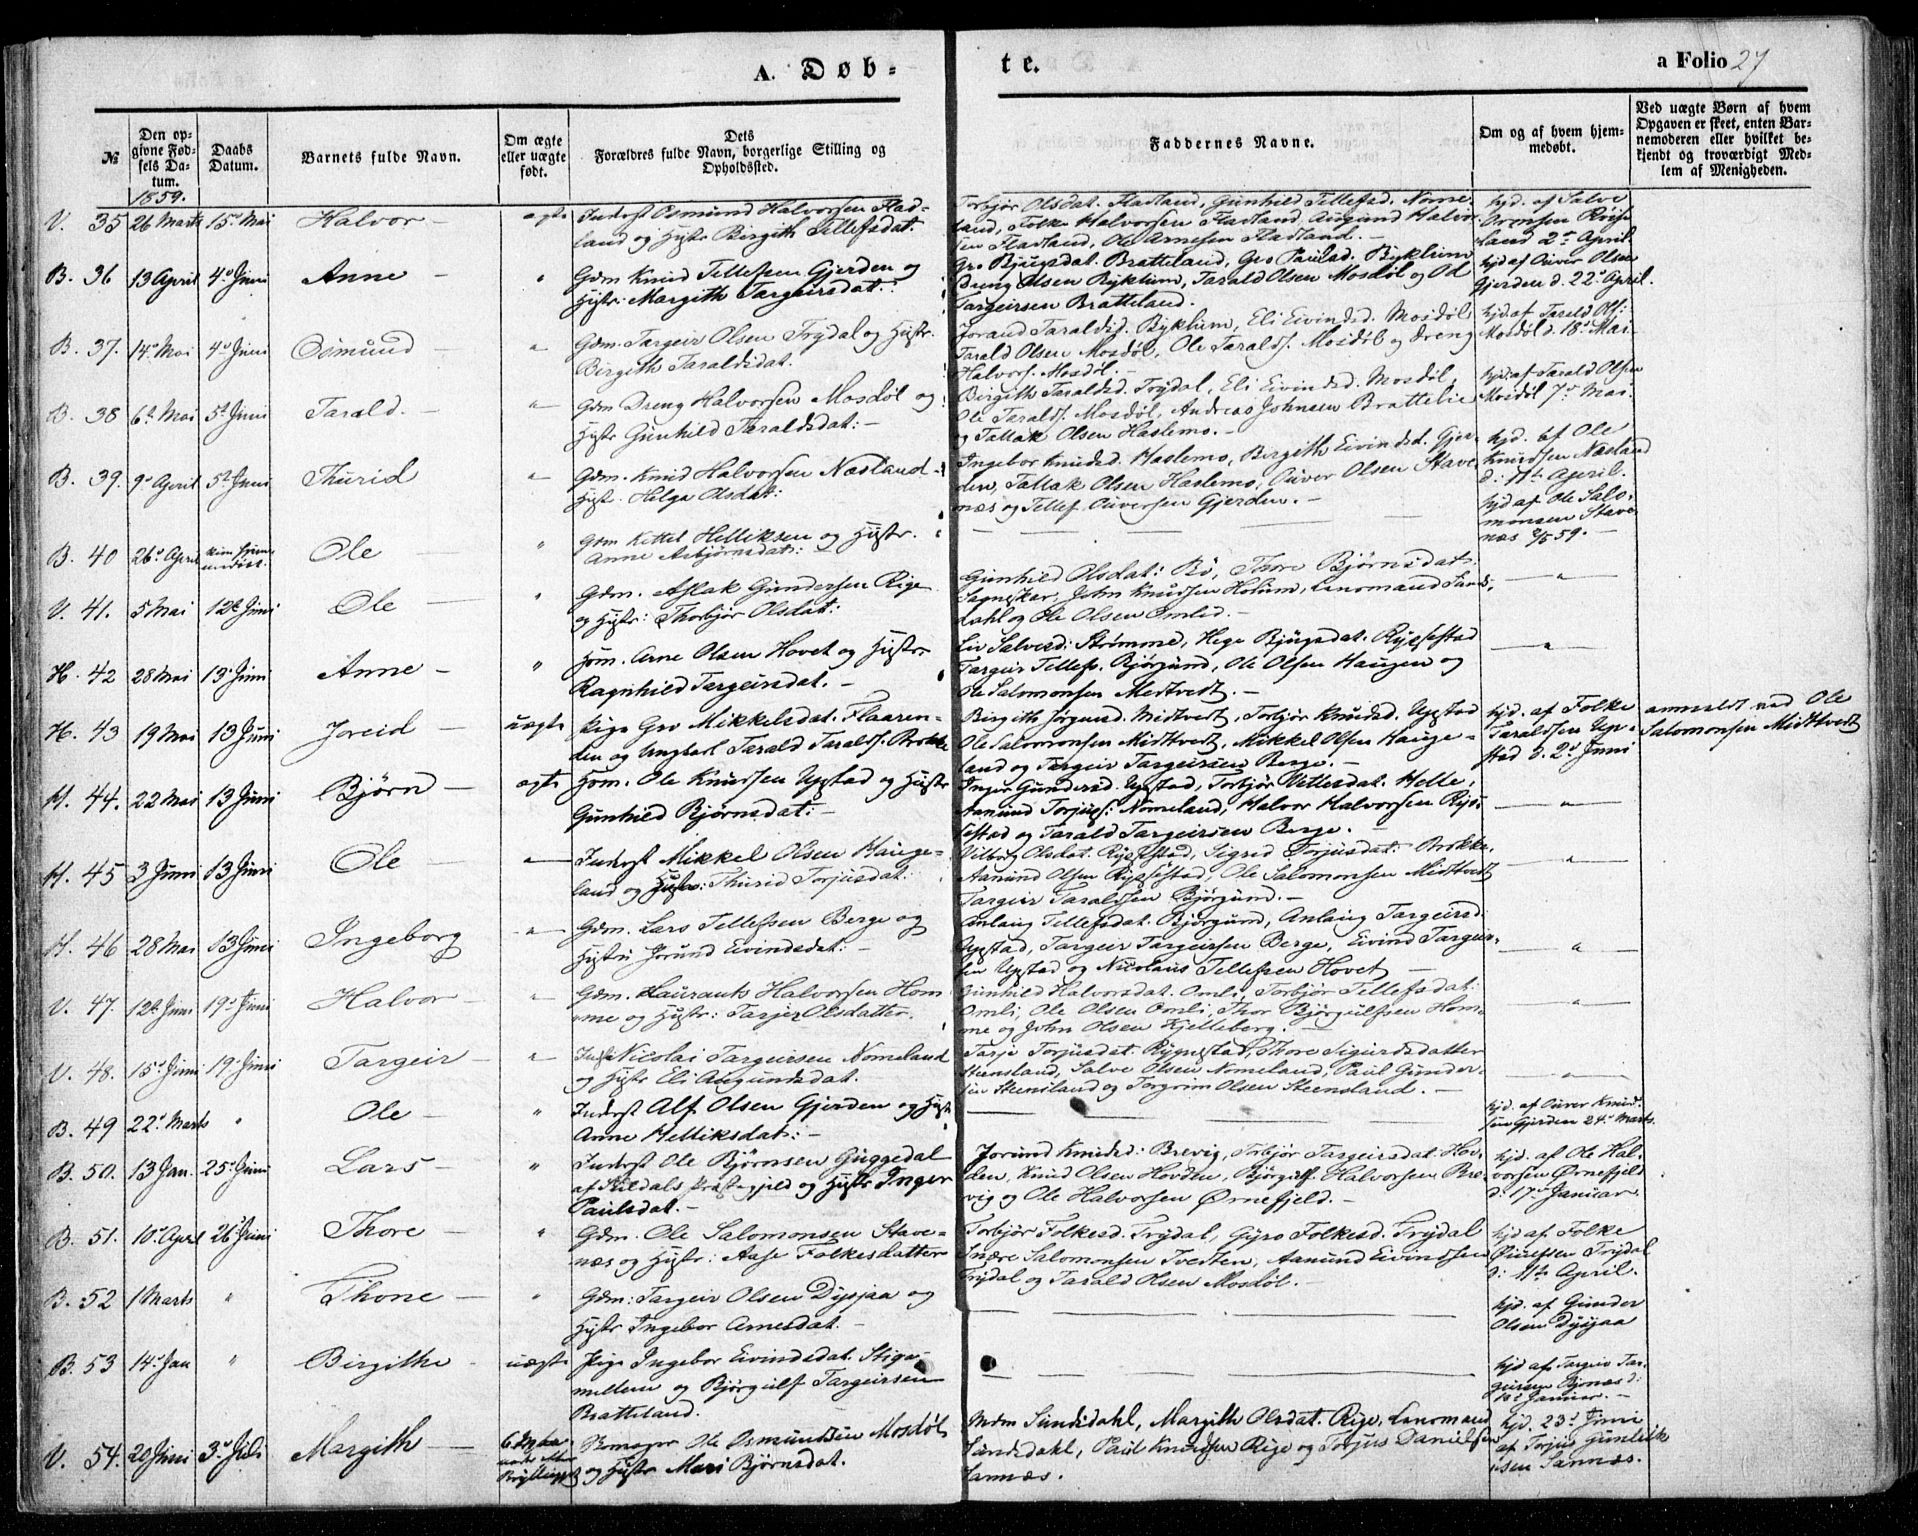 A. Døb-
te.
a Folio 27
№
Den opgivne Fødsels Datum.
Daabs Datum.
Barnets fulde Navn.
Om ægte eller uægte født.
Dets Forældres fulde Navn, borgerlige Stilling og Opholdssted.
Faddernes Navne.
Om og af hvem hjemmedøbt.
Ved uægte Børn af hvem Opgaven er skeet, enten Barnemoderen eller hvilket bekjendt og troværdigt Medlem af Menigheden.
1859.
V. 35 26 Marts 15de Mai Halvor ægte Inderst Osmund Halvorsen Flad-
land og Hustr Birgith Tellefsdat.
Torbjør Olsdat. Fladland, Gunhild Tellefsd. Nome-
land, Folke Halvorsen Fladland, Augund Halvor-
sen Fladland, Ole Arnesen Fladland.
hjd. af Salve
land 2den April
B. 36 13 April 4de Juni Anne " Gdm Knud Tellefsen Gjerden og
Hustr: Margith Targeirsdat.
Gro Bjugsdat. Bratteland, Gro Paulsd. Byklum
Dreng Olsen Byklum, Tarald Olsen Mosdøl og Od
Targeirsen Bratteland.
hjd af Ouver Olsen
Gjerden d. 22 April.
B. 37. 14de Mai 4de Juni Osmund " Gdm. Targeir Olsen Trydal og Hustr.
Birgith Taraldsdat.
Jorand Taraldsd. Byklum, Eli Eivindsd. Mosdøl
Tarald Olsen Mosdøl, Ole Taralds. Mosdøl og Dreng
Halvors. Mosdøl.
hjd. af Tarald Ols:
Mosdøl d. 18de Mai
B. 38 6te Mai 5te Juni Tarald " Gdm Dreng Halvorsen Mosdøl og
Hustr Gunhild Taraldsdat:
Birgith Taraldsd. Trydal, Eli Eivindsd. Mosdøl,
Ole Taralds. Mosdøl, Andreas Johnsen Brattelie
og Tallak Olsen Haslemo.
hjd. af Tarald Olsen
Mosdøl 7de Mai
B. 39. 9de April 5te Juni Thurid " Gdm. Knud Halvorsen Næsland
Hustr. Helga Olsdat:
Ingebor Knudsd. Haslemo, Bergith Eivindsd. Gjer-
den, Tallak Olsen Haslemo, Ouver Olsen Stave-
næs og Tellef Ouversen Gjerden.
hjd. af Ole
Knudsen Næsland
d: 11te April.
B. 40 26de April kun hjem-
medøbt. Ole " Gdm Kettel Helliksen og Hustr.
Anne Asbjørnsdat:
hjd af Ole Salo-
monsen Stave-
næs 2/5 59.
V. 41. 5 Mai 12te Juni Ole " Gdm. Aslak Gundersen Rige
og Hustr: Thorbjør Olsdat:
Gunhild Olsdat: Bø, Thore Bjørnsdat:
John Knudsen Holum, Lensmand Sands-
dahl og Ole Olsen Omlid.
"
H. 42 28 Mai 13 Juni Anne " Hom. Arne Olsen Hovet og Hustr
Ragnhild Targeirsdat.
Liv Salvesd: Strømme, Hege Bjugsdat. Rysstad
Targeir Tellefs. Bjørgund, Ole Olsen Haugen og
Ole Salomonsen Midtvedt.
"
H. 43 19 Mai 13 Juni Joreid uægte Pige Gro Mikkelsdat. Flaaren-
den og Ungkarl Tarald Taralds. Brokke
Birgith Jørgensd. Midtvedt, Torbjør Knudsd. Upstad
Ole Salomonsen Midtvedt, Mikkel Olsen Hauge-
land og Targeir Targeirsen Berge.
hjd. af Folke
Taraldsen Up-
stad d. 2den Juni
anmeldt ved Ole
Salomonsen Midtvedt
H. 44. 22 Mai 13 Juni Bjørn ægte Hom. Ole Knudsen Upstad og Hustr
Gunhild Bjørnsdat:
Inger Gundersd. Upstad, Torbjør Vettersdat. Helle,
Aamund Torjuss: Nomeland, Halvor Halvorsen Rys-
sestad og Tarald Targeirsen Berge.
"
H. 45 3 Juni 13 Juni Ole " Inderst Mikkel Olsen Hauge-
land og Hustr: Thurid Torjusdat:
Vilborg Olsdat. Rysstad, Sigrid Torjusdat: Brokke
Aamund Olsen Rysstad, Ole Salomonsen Midtvedt
Targeir Taraldsen Bjørgund.
"
H. 46 28 Mai 13 Juni Ingeborg " Gdm. Lars Tellefsen Berge og
Hustr: Jorund Eivindsdat:
Anlaug Tellefsdat. Bjørgund, Anlaug Targeirsd.
Upstad, Targeir Targeirsen Berge, Eivind Targeir-
sen Upstad og Nicolaus Tellefsen Hovet
"
V. 47. 12te Juni 19de Juni Halvor " Gdm. Laurants Halvorsen Hom-
me og Hustr: Tarjer Olsdatter.
Gunhild Halvorsdat. Omli, Torbjør Tellefsdat:
Omli, Ole Olsen Omli, Thor Bjørgulfsen Hom-
me og John Olsen Kjelleberg.
"
V. 48. 15de Juni 19de Juni Targeir " Inst Nicolai Targeirsen Nomeland
og Hustr Eli Augundsdat.
Tarje Torjusdat. Rygnestad, Thore Sigurdsdatter
Steensland, Salve Olsen Nomeland, Paul Gunder-
sen Steensland og Torgrim Olsen Steensland.
"
B. 49 22de Marts " Ole " Inderst Alf Olsen Gjerden og Hustr
Anne Helliksdat:
hjd. af Ouver Knud-
sen Gjerden 24de Marts.
B. 50. 13 Jan. 25de Juni Lars " Inderst Ole Bjørnsen Guggedal
af Suldals Præstegjeld og Hustr Inger
Paulsdat.
Jorund Knudsd: Brevig, Torbjør Targeirsdat: Hov-
den, Knud Olsen Hovden, Bjørgulf Halvorsen Bre-
vig og Ole Halvorsen Ørnefjeld.
hjd. af Ole Hal-
vorsen Ørnefjeld
d. 17de Januar.
B. 51. 10de April 26de Juni Thore " Gdm. Ole Salomonsen Stave-
næs og Hustr: Aase Folkesdatter
Torbjør Folkesd. Trydal, Gyro Folkesd. Trydal
Snære Salomonsen Tvesten, Aanund Eivindsen
Trydal og Tarald Olsen Mosdøl.
hjd af Folke
Trydal
d: 11te April.
B. 52 1 Marts " Thone " Gdm: Targeir Olsen Dysjaa og
Hustr Ingebor Arnesdat.
hjd. af Gunder
Olsen Dysjaa
B. 53 14de Jan " Birgithe uægte Pige Ingebor Eivindsdat. Stige-
mellem og Bjørgulf Targeirsen
Bratteland.
hjd af Targeir Tar-
geirsen Bjønes d:
Januar.
V. 54. 20 Juni 3de Juli Margith Ole Osmundsen Mosdøl
og Hustr Mari Bjørnsdat.
Mdm Sundsdahl, Margith Olsdat. Rige, Lensmand
Sundsdahl, Paul Knudsen Rige og Torjus Danielsen
Sannæs.
hjd. 23de Juni
af Torjus Gunleik-
sen Sannæs.